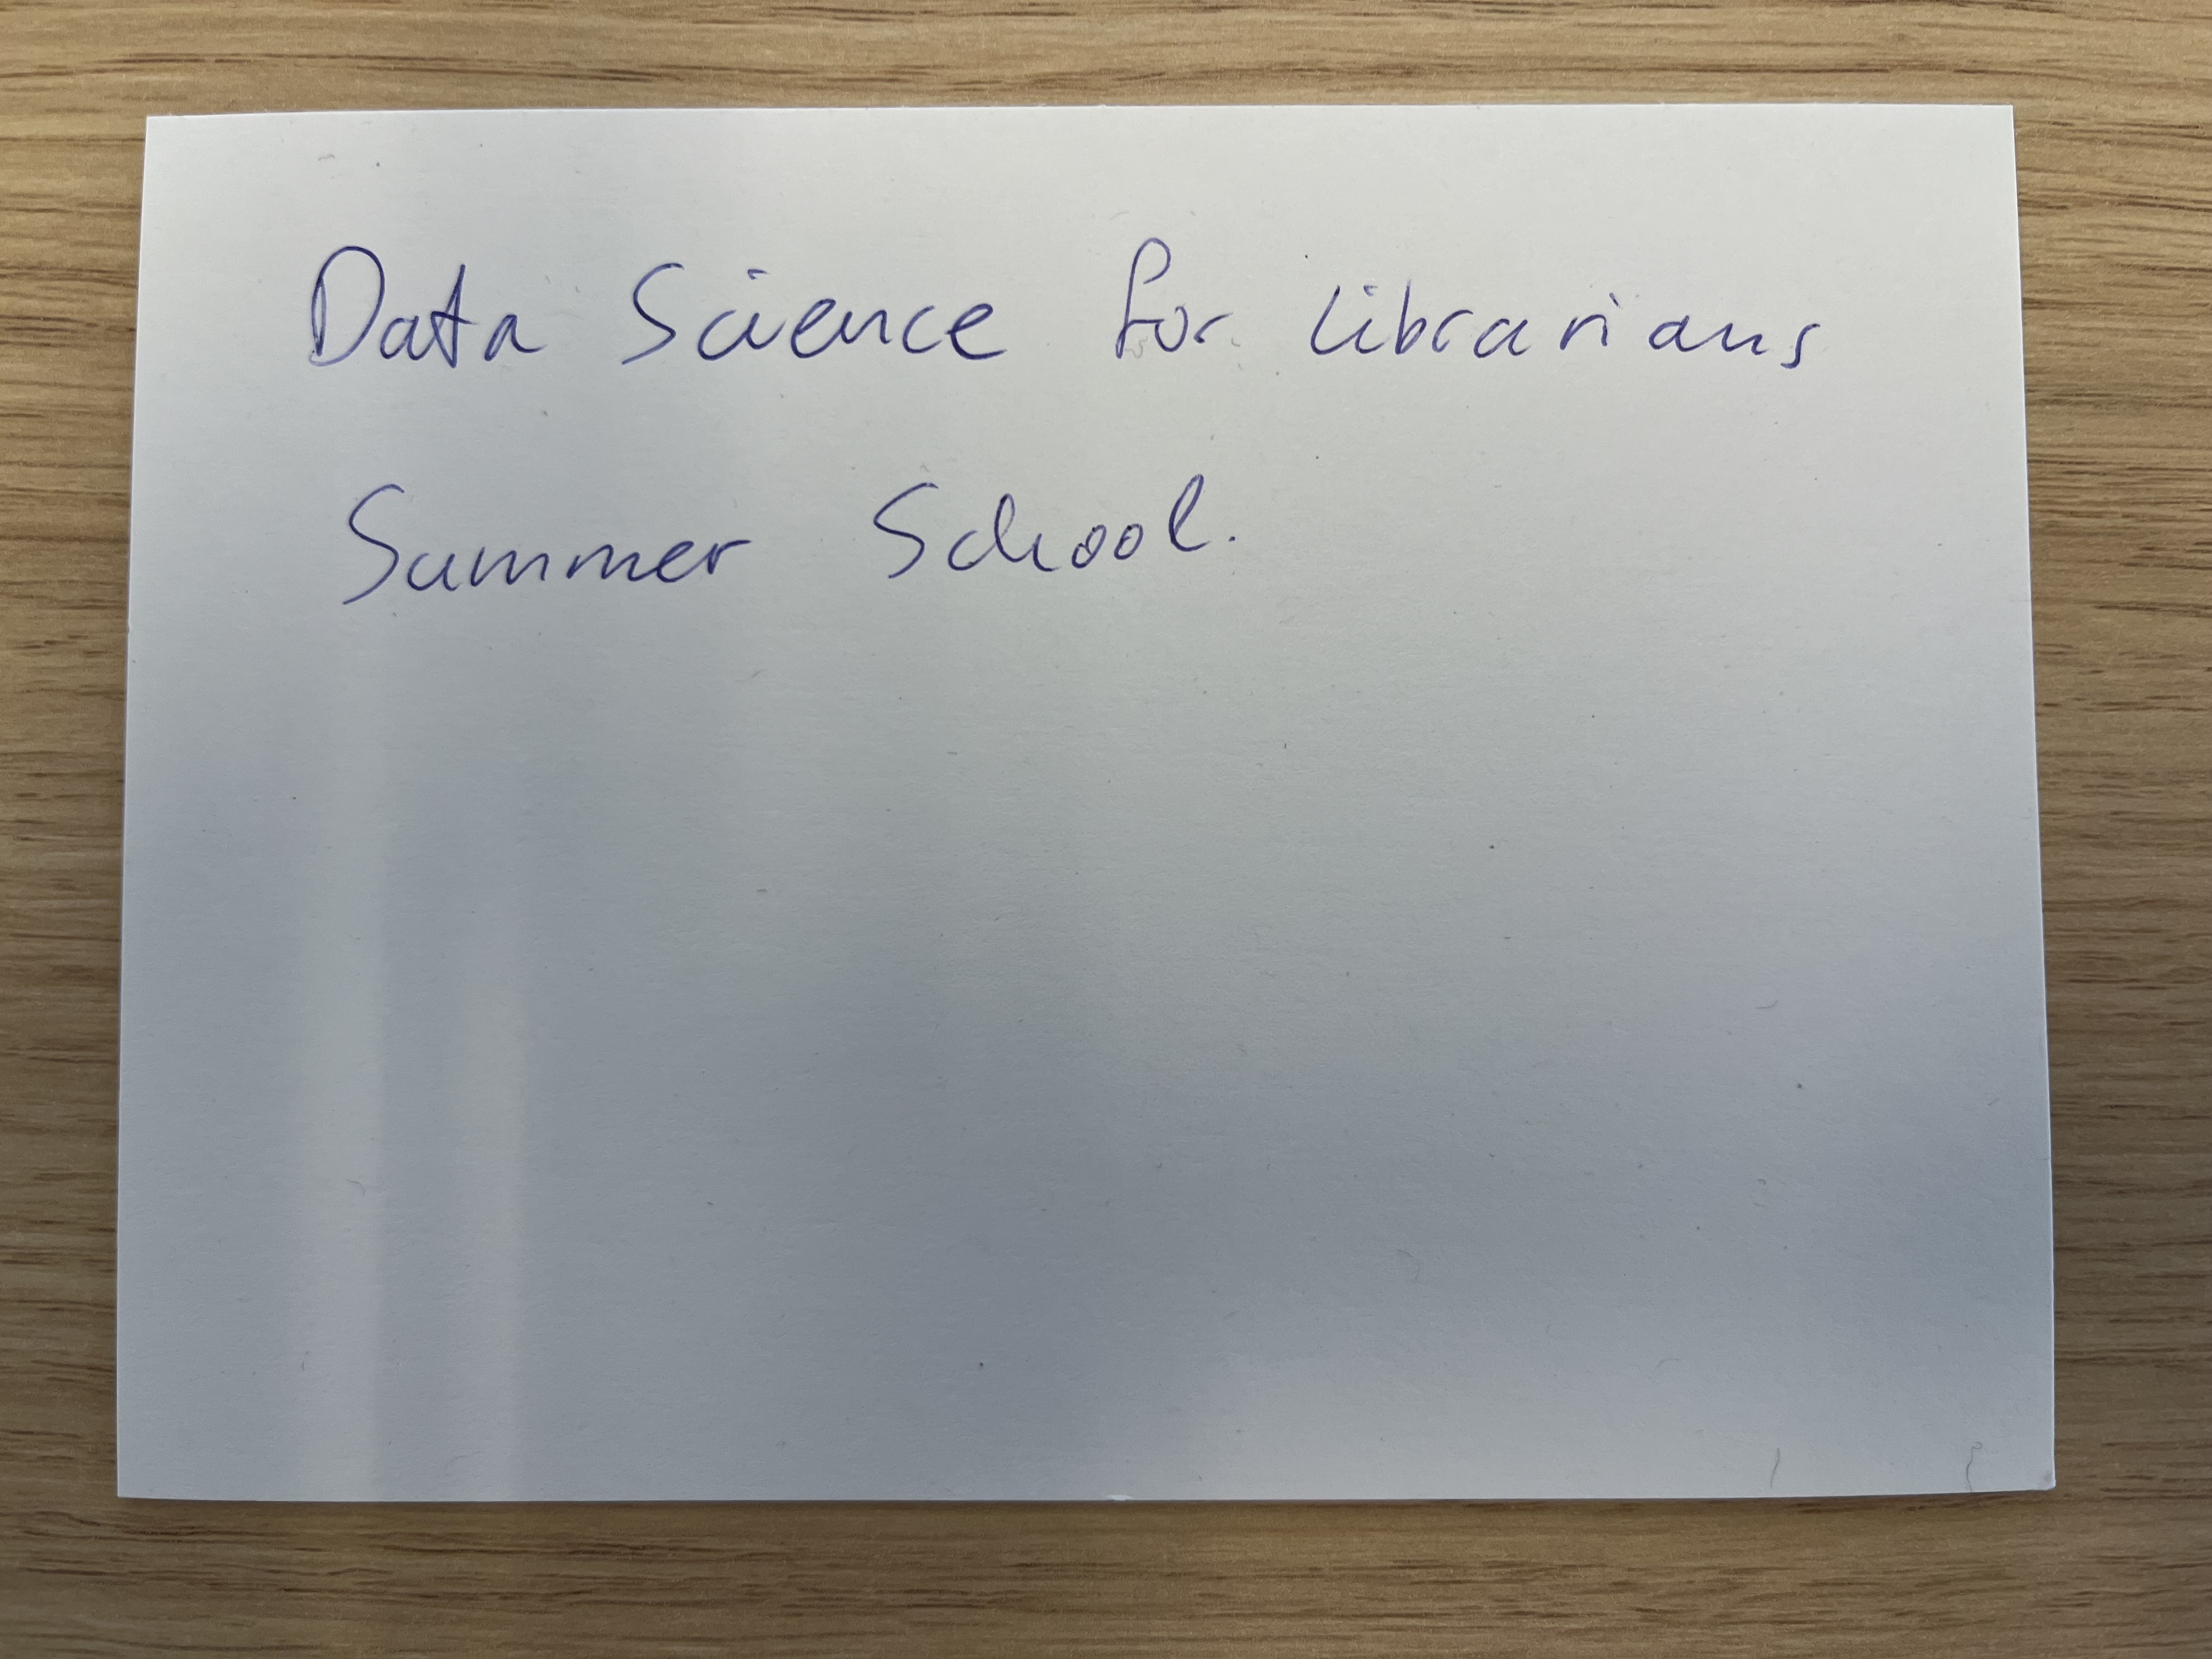 Data Science for librarians
Summer School.